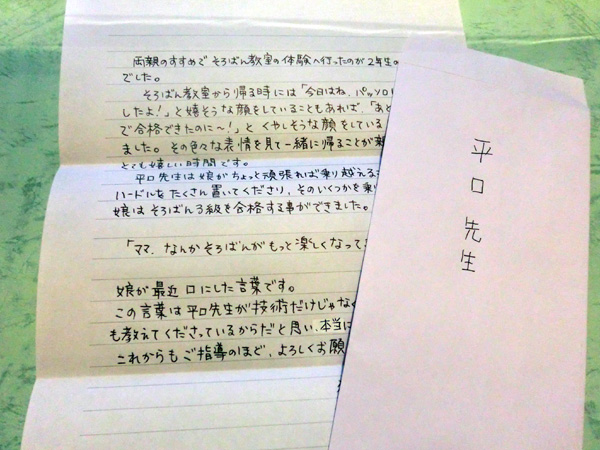 両親のすすめで そろばん教室の体験へ行ったのが2年生の
でした。
そろばん教室から帰る時には「今日はね、パッソロ
したよ!」と嬉そうな顔をしていることもあれば、「あと
で合格できたのに〜!」と くやしそうな顔をしている
ました。その色々な表情を見て一緒に帰ることが
とても嬉しい時間です。
平口先生は娘がちょっと頑張れば乗り越える
ハードルをたくさん置いてくださり、そのいくつかを乗り
娘はそろばん3級を合格する事ができました。
「ママ、なんかそろばんがもっと楽しくなって
娘が最近口にした言葉です。
この言葉は平口先生が技術だけじゃなく
も教えてくださっているからだと思い、本当に
これからもご指導のほど、よろしくお願
平口先生